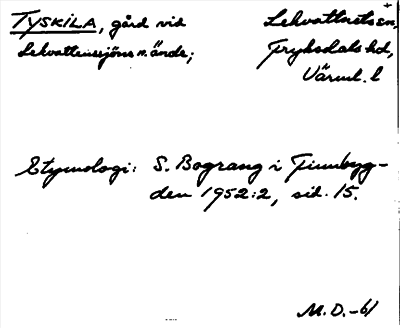 TYSKILA, gård vid
Lekvattnets sn,
Lekvattensjöns n. ände;
Fryksdals hd,
Värml. l
Etymologi: S. Bograng i Finnbyg-
den 1952:2, sid. 15.
M.D.-61